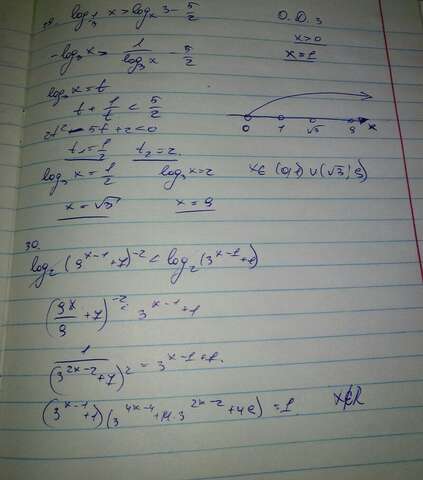 29. log_{1/3} x > log_x 3 - 5/2    О.D.З
x>0
-log_3 x > 1/log_3 x - 5/2    x=1
log_3 x = t
t + 1/t < 5/2
2t² - 5t + 2 < 0    0 1 √3 9 x
t_1 = 1/2    t_2 = 2.
log_3 x = 1/2    log_3 x = 2    x∈ (0,1) ∪ (√3; 9)
x = √3    x = 9
30.
log_2 (9^{x-1}+7)^{-2} < log_2 (3^{x-1}+1)
(9^x/9 + 7)^{-2} = 3^{x-1}+1
1/(3^{2x-2}+7)^2 = 3^{x-1}+1.
(3^{x-1}+1)(3^{4x-4}+14·3^{2x-2}+49) = 1.    x∉R